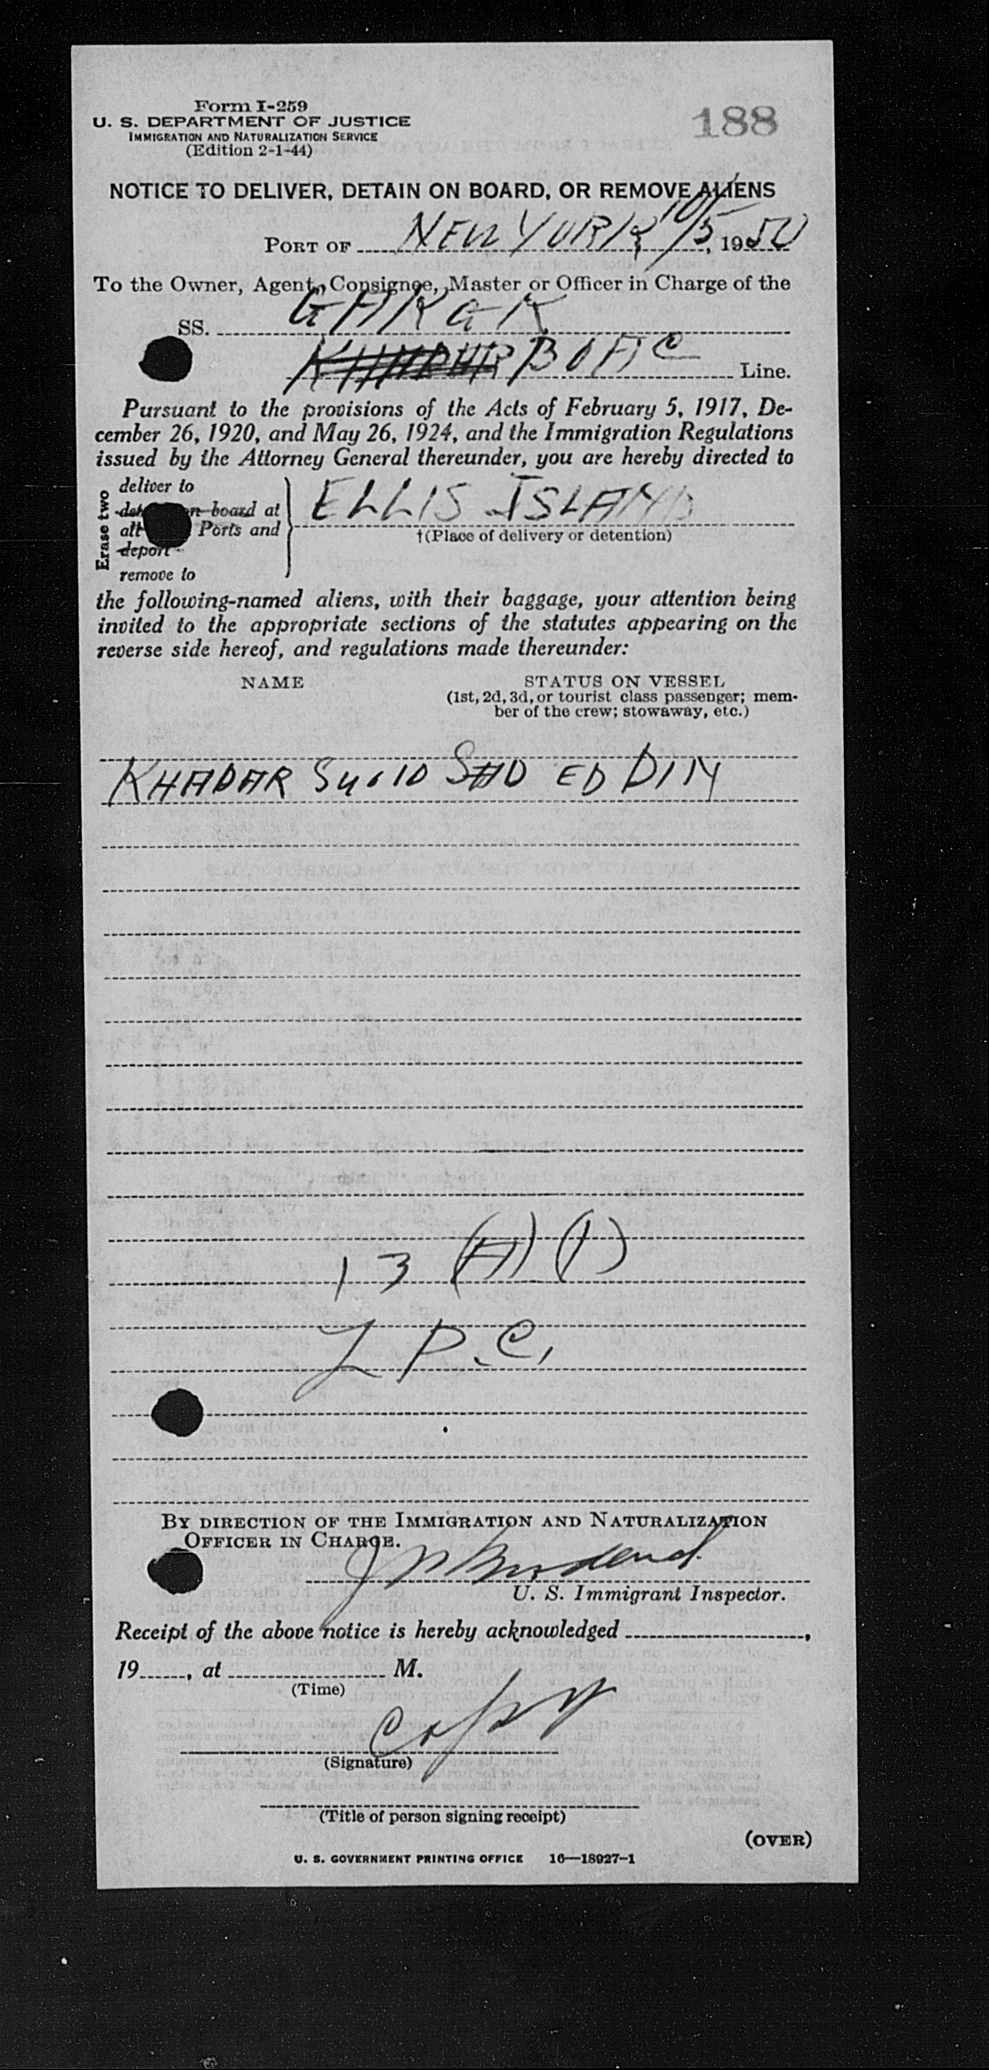 Form I-259
U. S. DEPARTMENT OF JUSTICE
IMMIGRATION AND NATURALIZATION SERVICE
(Edition 2-1-44)
188
NOTICE TO DELIVER, DETAIN ON BOARD, OR REMOVE ALIENS
PORT OF NEW YORK 10/5, 1950
To the Owner, Agent, Consignee, Master or Officer in Charge of the
SS.
BOAC Line.
Pursuant to the provisions of the Acts of February 5, 1917, De-
cember 26, 1920, and May 26, 1924, and the Immigration Regulations
issued by the Attorney General thereunder, you are hereby directed to
Erase two
deliver to
on board at
Ports and
deport
remove to
ELLIS ISLAND
†(Place of delivery or detention)
the following-named aliens, with their baggage, your attention being
invited to the appropriate sections of the statutes appearing on the
reverse side hereof, and regulations made thereunder:
NAME
STATUS ON VESSEL
(1st, 2d, 3d, or tourist class passenger; mem-
ber of the crew; stowaway, etc.)
KHADAR SAD ED DIN
13 (A) (1)
L P.C.
BY DIRECTION OF THE IMMIGRATION AND NATURALIZATION
OFFICER IN CHARGE.
U. S. Immigrant Inspector.
Receipt of the above notice is hereby acknowledged ,
19 , at M.
(Time)
Copy
(Signature)
(Title of person signing receipt)
(OVER)
U. S. GOVERNMENT PRINTING OFFICE 16—18927-1